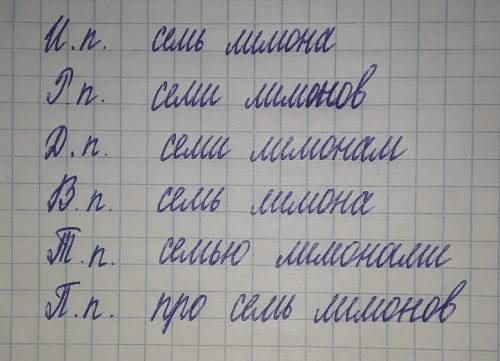 И.п. семь лимона
Р.п. семи лимонов
Д.п. семи лимонам
В.п. семь лимона
Т.п. семью лимонами
П.п. про семь лимонов